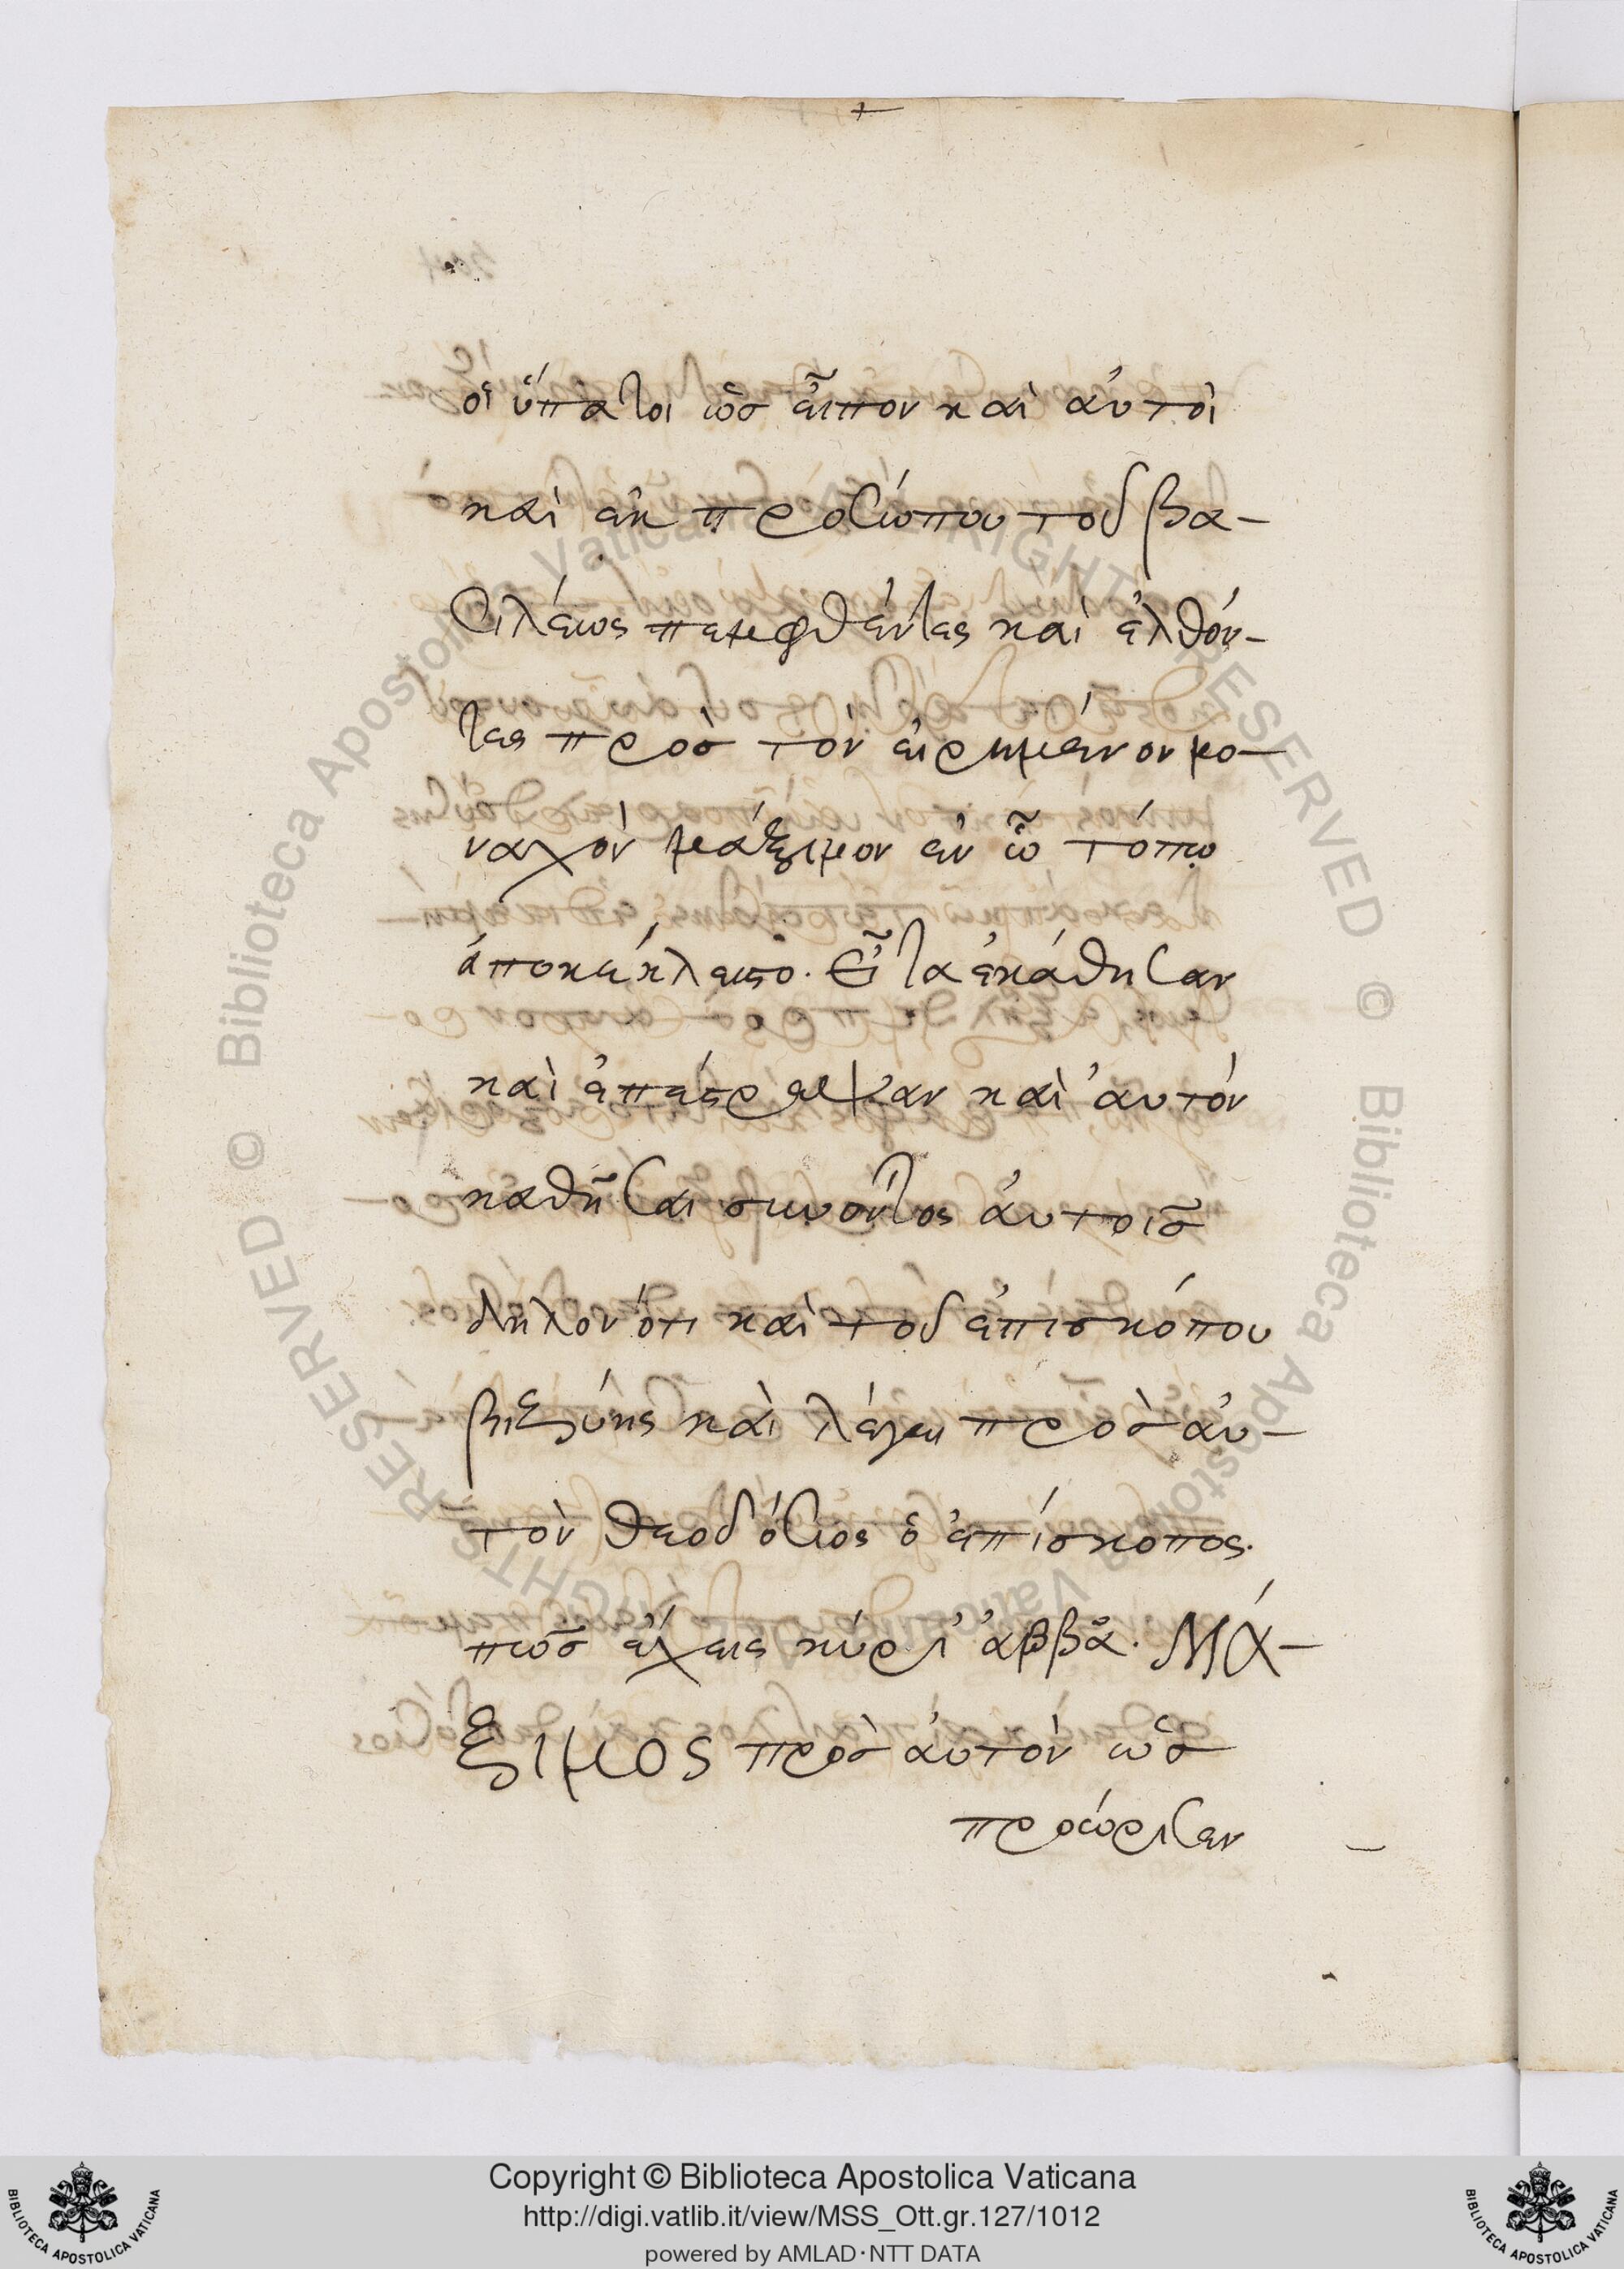 οἱ ὕπατοι ὡσ εἶπον καὶ αὐτοὶ
καὶ ἐκ προσώπου τοῦ βα-
σιλέως πεμφθέντες καὶ ἐλθόν-
τες πρὸσ τὸν εἰρημένον μο-
ναχὸν μάξιμον ἐν ὧ τόπῳ
ἀπεκέκλειστο. Εἶτα ἐκάθησαν
καὶ ἐπέτρεψαν καὶ αὐτὸν
καθῆσαι συνόντος αὐτοῖσ
δηλονότι καὶ τοῦ ἐπισκόπου
βιζύης καὶ λέγει πρὸσ αὐ-
τὸν θεοδόσιος ὁ ἐπίσκοπος.
πῶσ ἔχεις κύρι ἀββᾶ. Μά-
ξιμος πρὸσ αὐτὸν ὡσ
προώρισεν
Copyright © Biblioteca Apostolica Vaticana
http://digi.vatlib.it/view/MSS_Ott.gr.127/1012
powered by AMLAD·NTT DATA